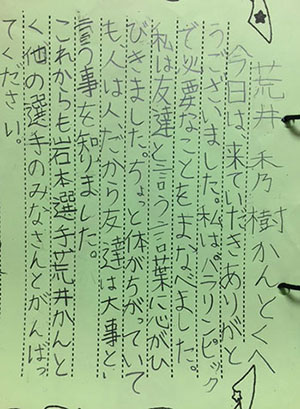 荒井秀樹かんとくへ
今日は、来ていたきありがと
うございました。私は、パラリンピック
で必要なことをまなべました。
私は友達と言う言葉に心がひ
びきました。ちょっと体がちがっていて
も、人は人だから友達は大事とい
言う事を知りました。
これからも岩本選手荒井かんと
く他の選手のみなさんとがんばっ
てください。